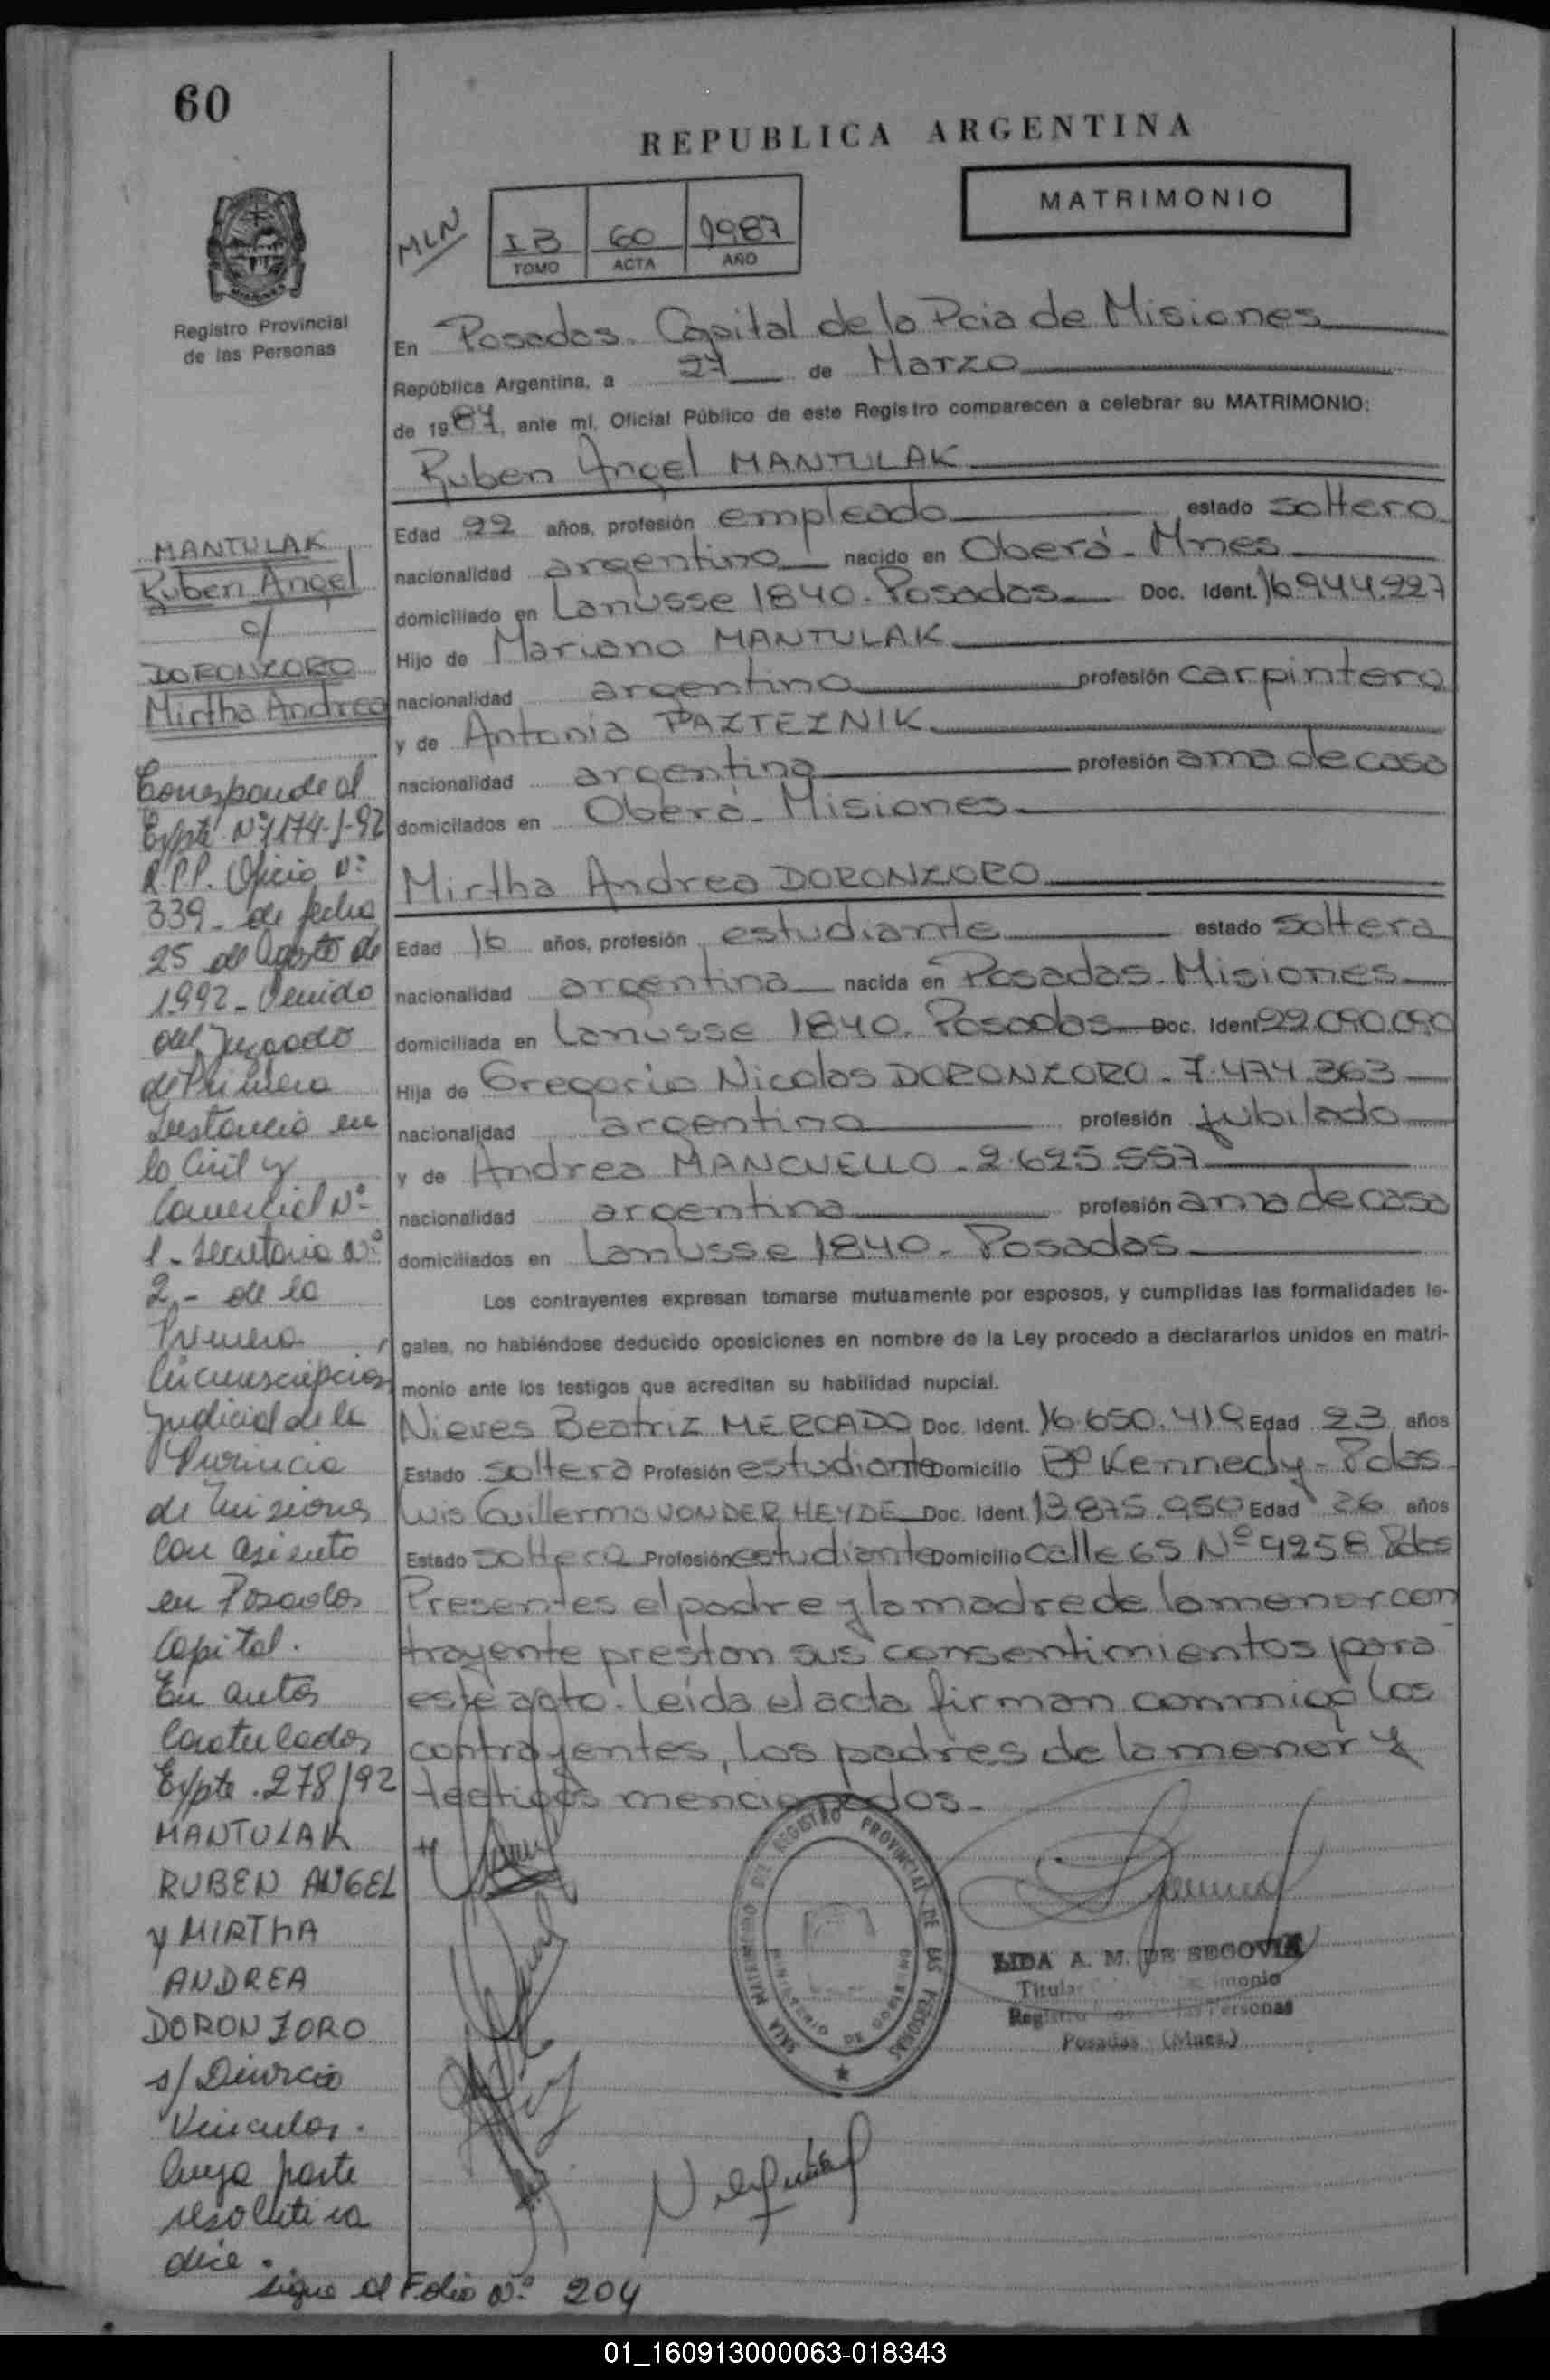 60
REPUBLICA ARGENTINA
MATRIMONIO
MLN
IB 60 1987
TOMO ACTA AÑO
Registro Provincial
de las Personas
En Posadas. Capital de la Pcia de Misiones
República Argentina, a 27 de Marzo
de 1987, ante mí, Oficial Público de este Registro comparecen a celebrar su MATRIMONIO:
Ruben Angel MANTULAK
Edad 22 años, profesión empleado estado soltero
nacionalidad argentino nacido en Oberá - Mnes
domiciliado en Lanusse 1840. Posadas Doc. Ident. 16.944.227
Hijo de Mariano MANTULAK
nacionalidad argentino profesión carpintero
y de Antonia
nacionalidad argentina profesión ama de casa
domiciliados en Oberá - Misiones
Mirtha Andrea DORONZORO
Edad 16 años, profesión estudiante estado soltera
nacionalidad argentina nacida en Posadas. Misiones
domiciliada en Lanusse 1840. Posadas Doc. Ident 22.090.090
Hija de Gregorio Nicolas DORONZORO - 7.474.363
nacionalidad argentino profesión jubilado
y de Andrea MANCUELLO - 2.625.557
nacionalidad argentina profesión ama de casa
domiciliados en Lanusse 1840 - Posadas
Los contrayentes expresan tomarse mutuamente por esposos, y cumplidas las formalidades le-
gales, no habiéndose deducido oposiciones en nombre de la Ley procedo a declararlos unidos en matri-
monio ante los testigos que acreditan su habilidad nupcial.
Nieves Beatriz MERCADO Doc. Ident. 16.650.419 Edad 23 años
Estado soltera Profesión estudiante Domicilio Bº Kennedy - Pdas
Luis Guillermo VONDER HEYDE Doc. Ident. 13.875.950 Edad 26 años
Estado soltero Profesión estudiante Domicilio calle 65 Nº 9258 Pdas
Presentes el padre y la madre de la menor con
trayente prestan sus consentimientos para
este acto. Leída el acta firman conmigo los
contrayentes, los padres de la menor y
testigos mencionados.
MANTULAK
Ruben Angel
c/
DORONZORO
Mirtha Andrea
Corresponde al
Expte Nº 1174-J-92
R.P.P. Oficio Nº
339 - de fecha
25 de Agosto de
1992 - Venido
del Juzgado
de Primera
Instancia en
lo Civil y
Comercial Nº
1 - Secretaria Nº
2 - de la
Primera
Circunscripcion
Judicial de la
Provincia
de Misiones
con asiento
en Posadas
Capital.
En autos
Caratulados
Expte. 278/92
MANTULAK
RUBEN ANGEL
y MIRTHA
ANDREA
DORONZORO
s/ Divorcio
Vincular.
Cuya parte
resolutiva
dice.
sigue al Folio Nº 204
SALA MATRIMONIO DEL REGISTRO PROVINCIAL DE LAS PERSONAS
MINISTERIO DE GOBIERNO
LIDA A. M. DE SEGOVIA
Posadas (Mnes.)
01_160913000063-018343